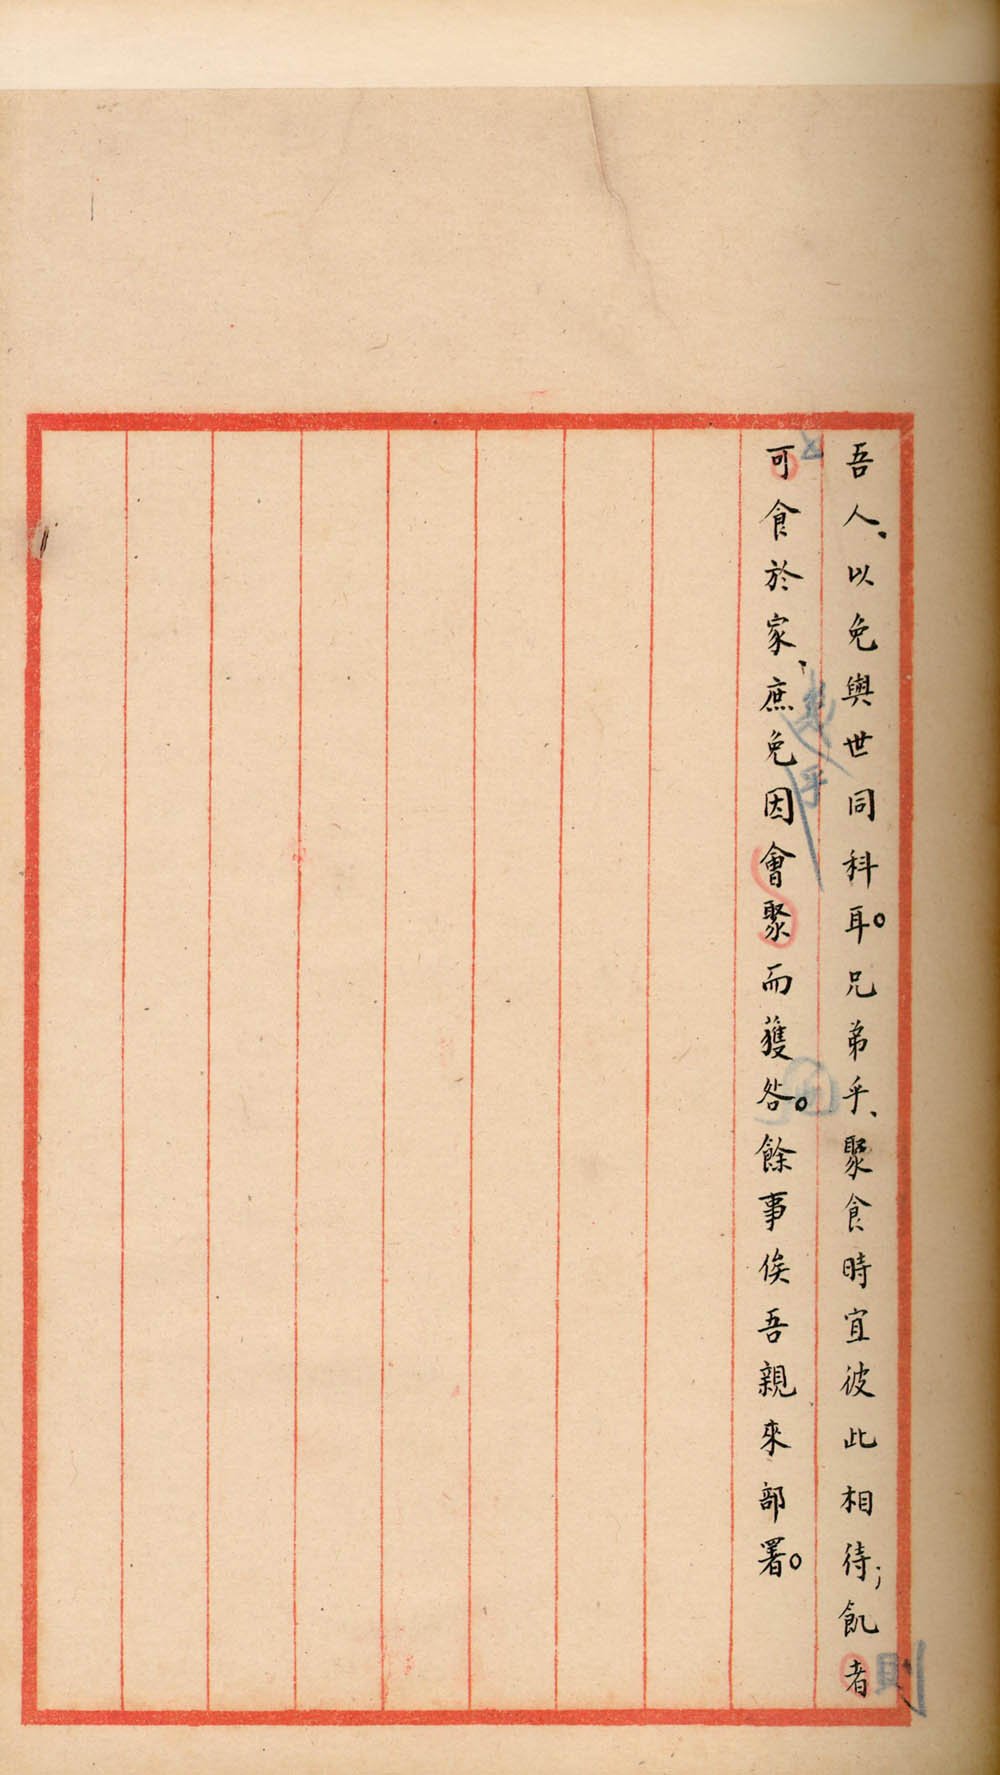 吾人、以免與世同科耳。兄弟乎、聚食時宜彼此相待；飢者
則
可食於家、庶免因會聚而獲咎。餘事俟吾親來部署。
乎